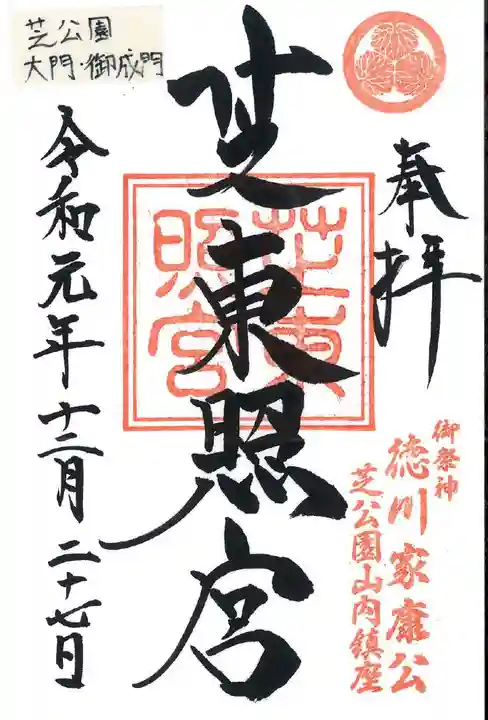 奉拝
御祭神
徳川家康公
芝公園山内鎮座
芝東照宮
芝東
照宮
令和元年十二月二十七日
芝公園
大門・御成門